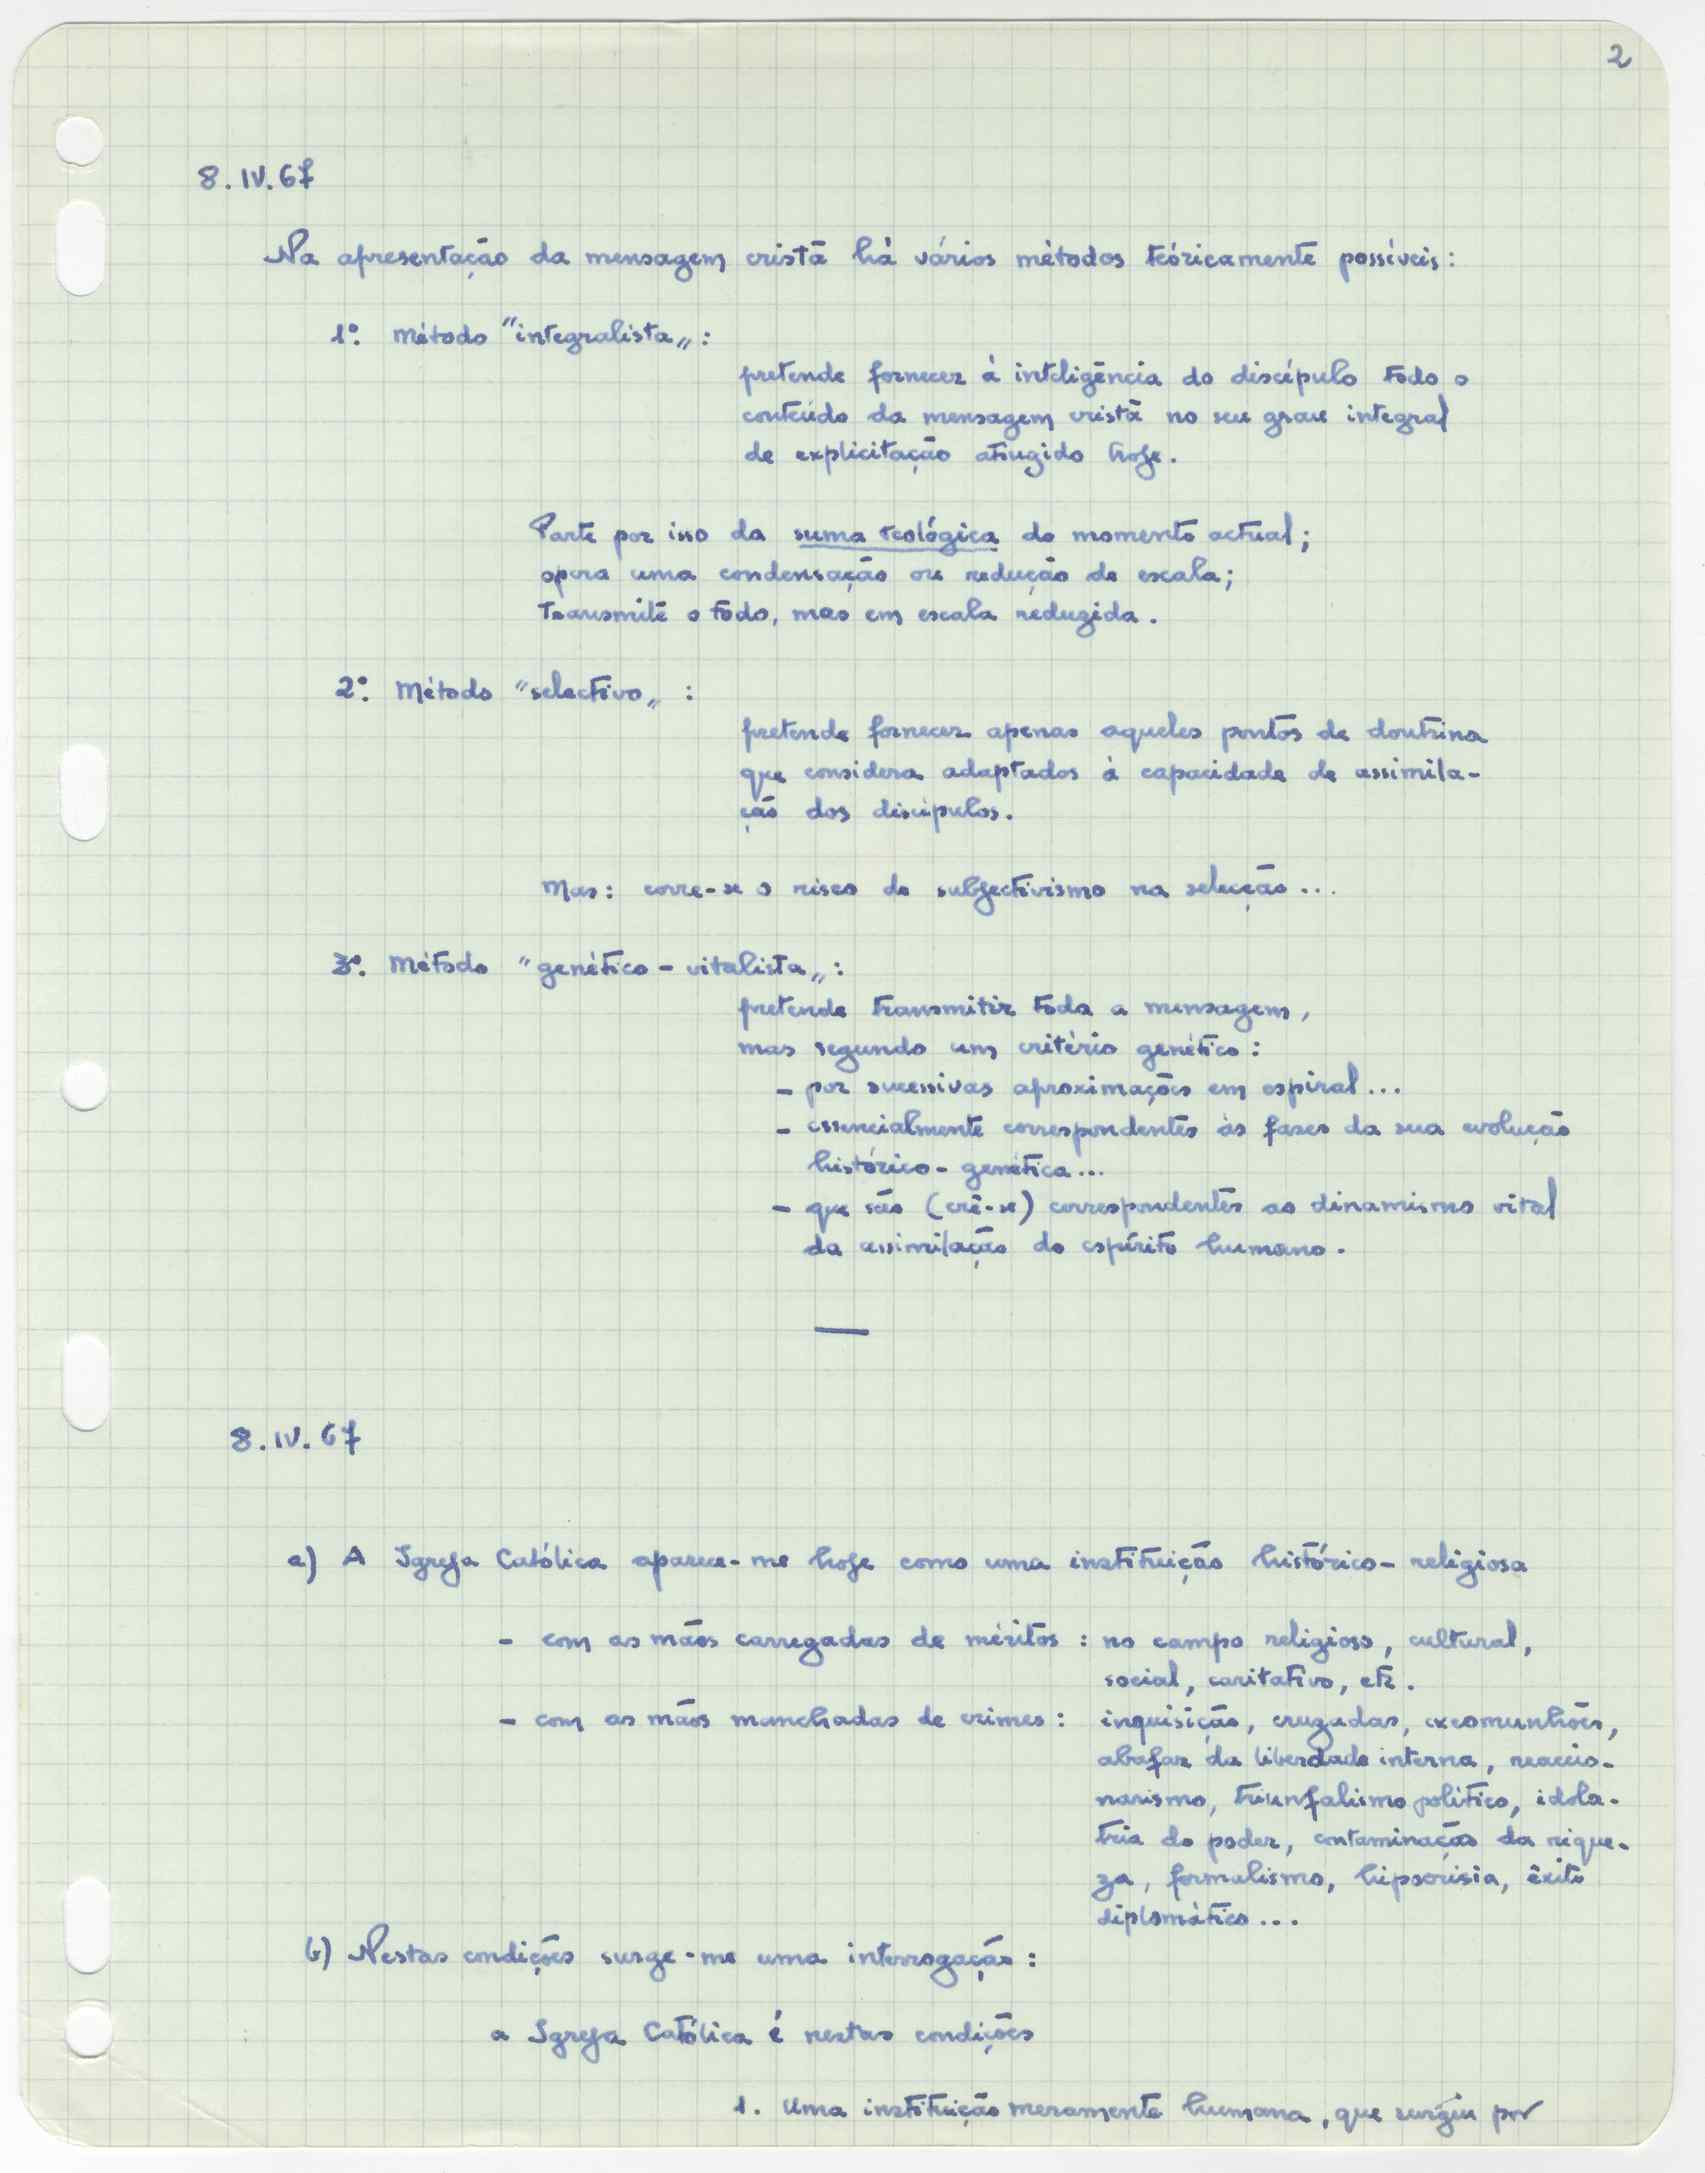 2
8.IV.67
Na apresentação da mensagem cristã há vários métodos teóricamente possíveis:
1º. Método "integralista":
pretende fornecer à inteligência do discípulo todo o
conteúdo da mensagem cristã no seu grau integral
de explicitação atingido hoje.
Parte por isso da suma teológica do momento actual;
opera uma condensação ou redução de escala;
transmite o todo, mas em escala reduzida.
2º. Método "selectivo":
pretende fornecer apenas aqueles pontos de doutrina
que considera adaptados à capacidade de assimila-
ção dos discípulos.
Mas: corre-se o risco de subjectivismo na selecção...
3º. Método "genético-vitalista":
pretende transmitir toda a mensagem,
mas segundo um critério genético:
- por sucessivas aproximações em espiral...
- essencialmente correspondentes às fases da sua evolução
histórico-genética...
- que são (crê-se) correspondentes ao dinamismo vital
da assimilação do espírito humano.
8.IV.67
a) A Igreja Católica aparece-me hoje como uma instituição histórico-religiosa
- com as mãos carregadas de méritos: no campo religioso, cultural,
social, caritativo, etc.
- com as mãos manchadas de crimes: inquisição, cruzadas, excomunhões,
abafar da liberdade interna, reaccio-
narismo, triunfalismo político, idola-
tria do poder, contaminação da rique-
za, formalismo, hipocrisia, êxito
diplomático...
b) Nestas condições surge-me uma interrogação:
a Igreja Católica é nestas condições
1. Uma instituição meramente humana, que surgiu por